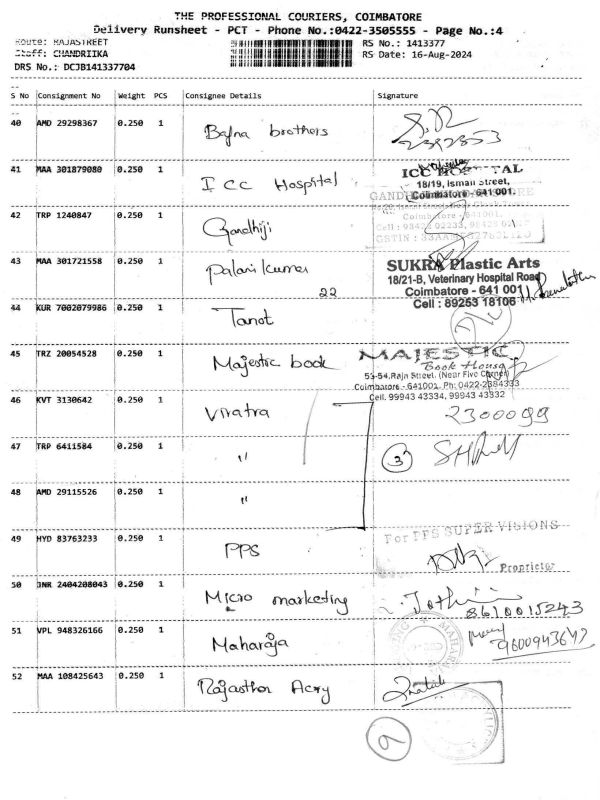 THE PROFESSIONAL COURIERS, COIMBATORE
Delivery Runsheet - PCT - Phone No.:0422-3505555 - Page No.:4
Route: RAJASTREET RS No.: 1413377
Staff: CHANDRIIKA RS Date: 16-Aug-2024
DRS No.: DCJB141337704
S No Consignment No Weight PCS Consignee Details Signature
40 AMD 29298367 0.250 1 Bafna brothers
41 MAA 301879080 0.250 1 ICC Hospital
ICC HOSPITAL
18/19, Ismail Street,
Coimbatore - 641 001.
42 TRP 1240847 0.250 1 Gandhiji
Coimbatore - 641001.
43 MAA 301721558 0.250 1 Palani kumar 22
SUKRA Plastic Arts
18/21-B, Veterinary Hospital Road
Coimbatore - 641 001
Cell : 89253 18106
44 KUR 7002079986 0.250 1 Tanot
D/L
45 TRZ 20054528 0.250 1 Majestic book
MAJESTIC
Book House
53-54,Raja Street, (Near Five Corner)
Coimbatore - 641001. Ph: 0422-2384333
Cell. 99943 43334, 99943 43332
46 KVT 3130642 0.250 1 Viratra 2300099
47 TRP 6411584 0.250 1 〃 3
48 AMD 29115526 0.250 1 〃
49 HYD 83763233 0.250 1 PPS
For PPS SUPER VISIONS
Proprietor
50 JNR 2404208043 0.250 1 Micro marketing
8610015243
51 VPL 948326166 0.250 1 Maharaja 9600943642
52 MAA 108425643 0.250 1 Rajasthan Acry
9